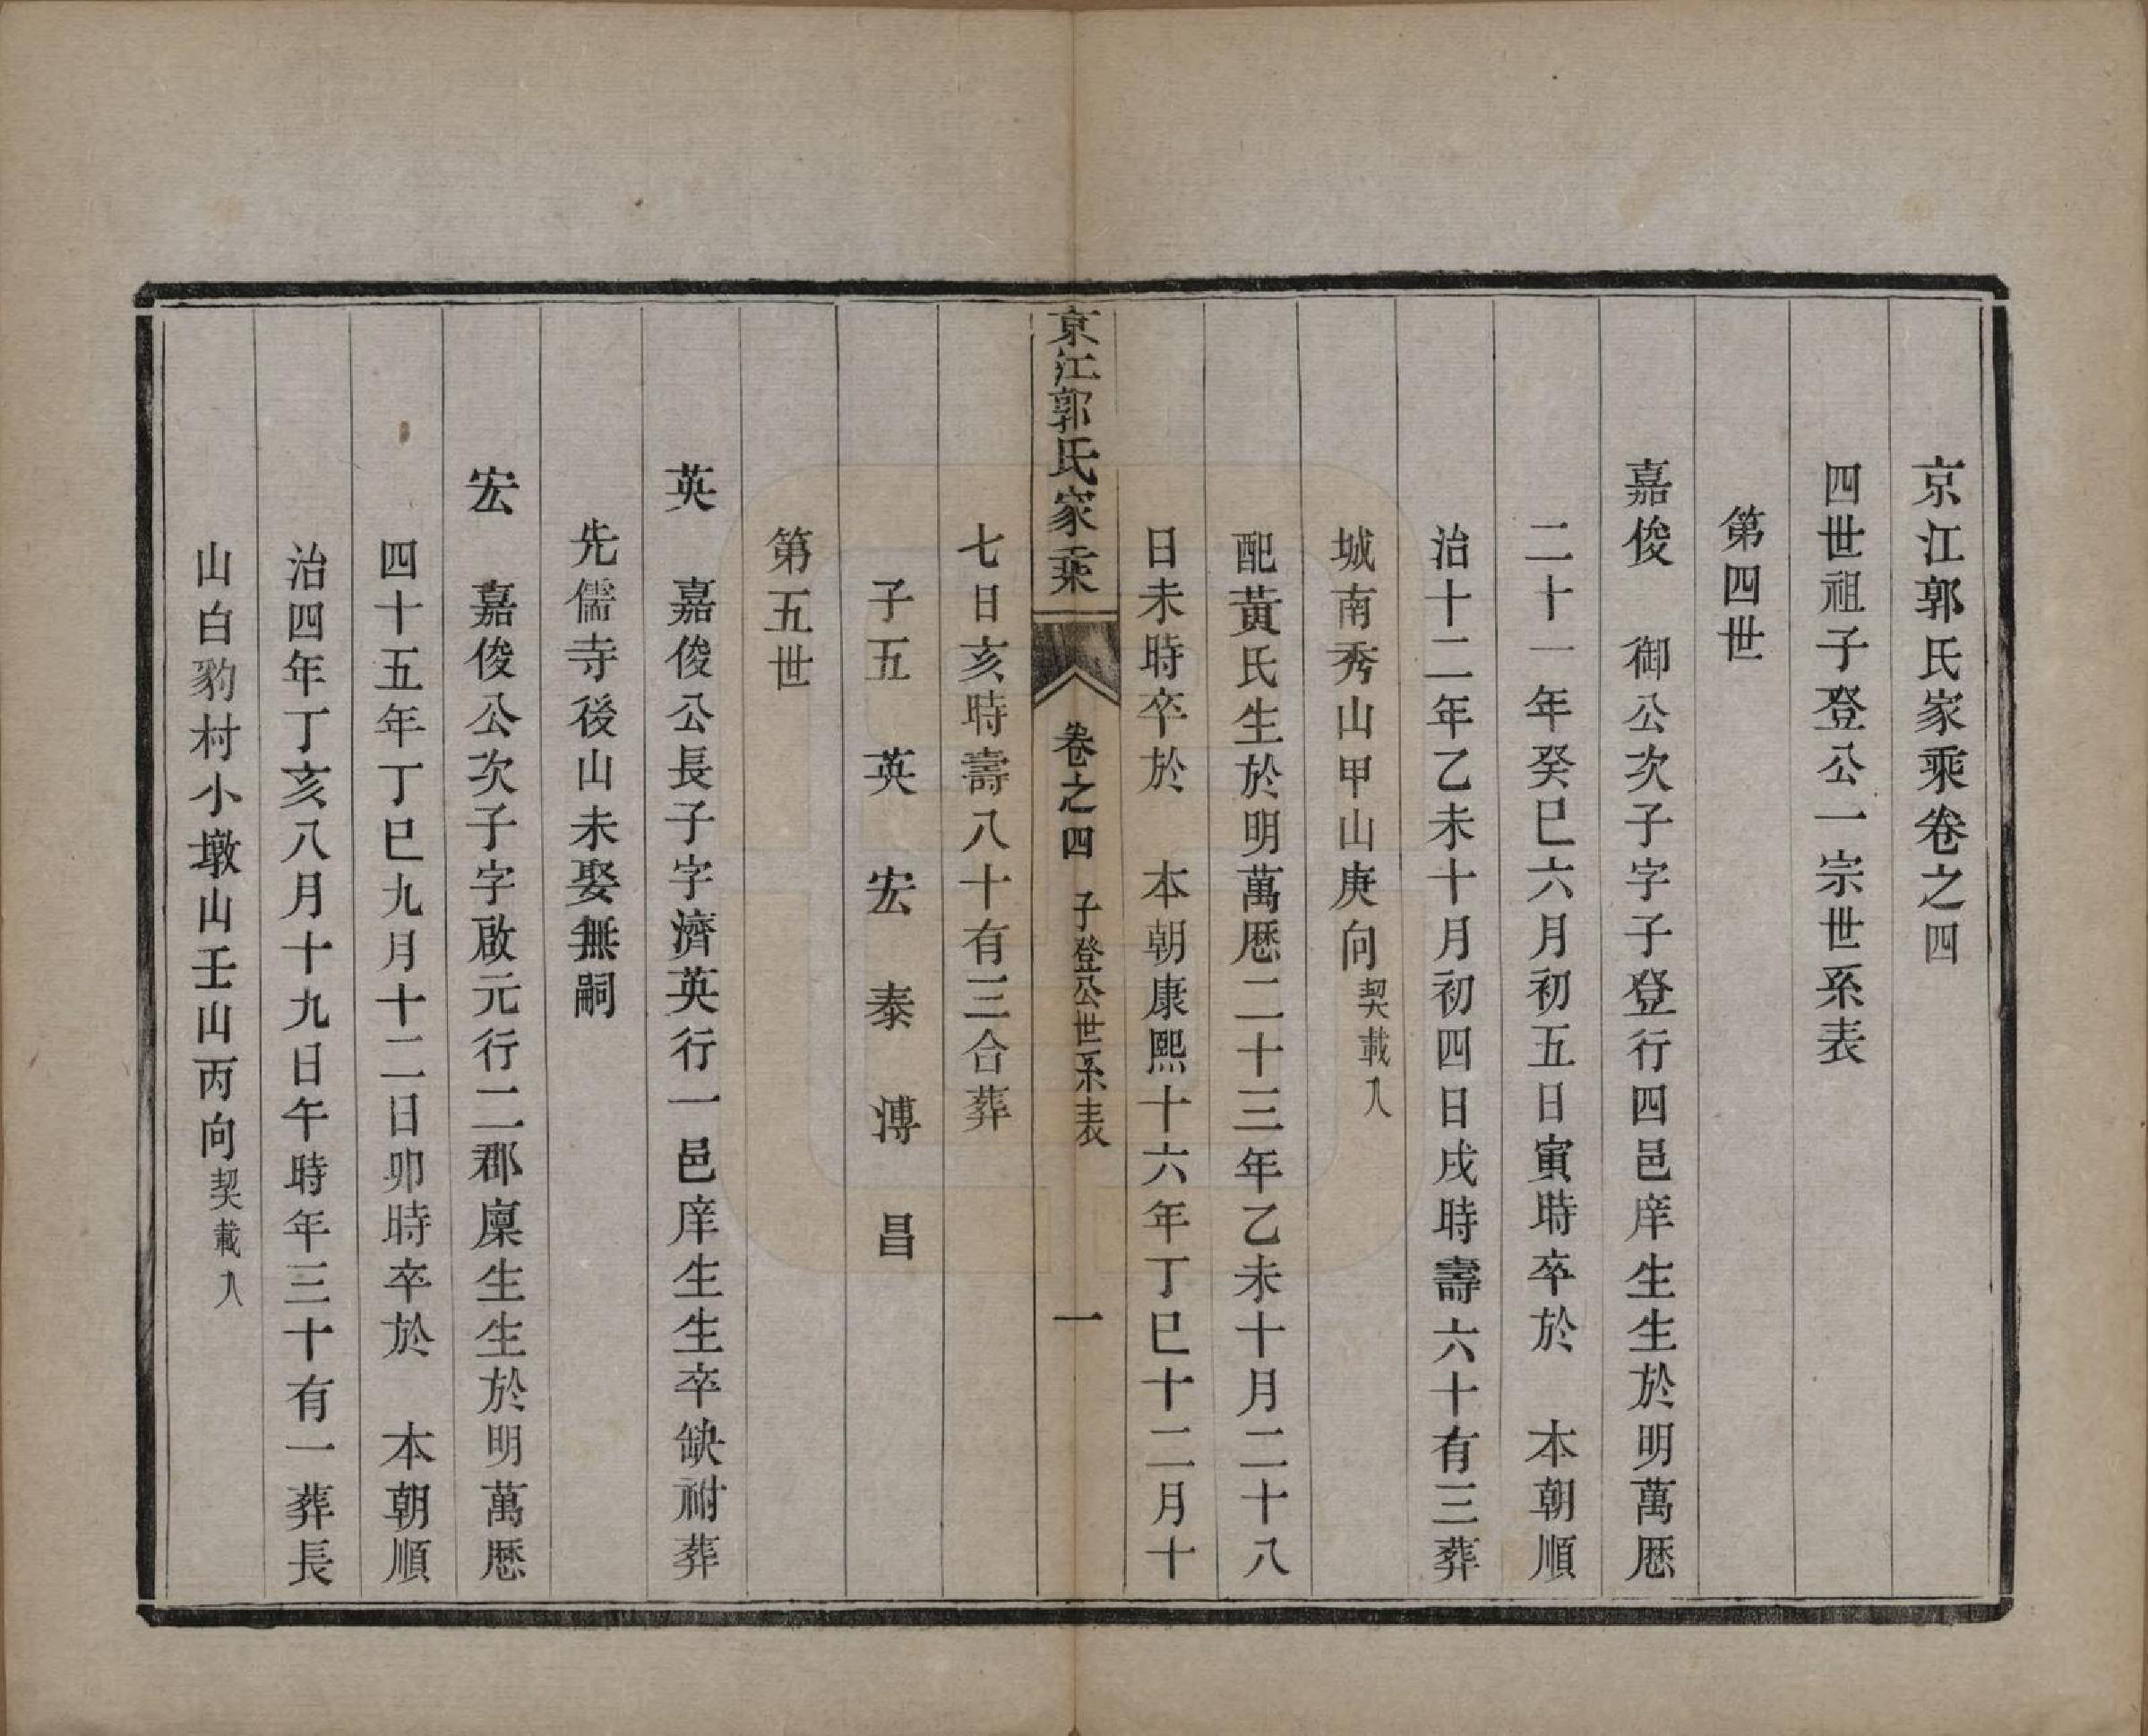 京江郭氏家乘卷之四
四世祖子登公一宗世系表
第四世
嘉俊　御公次子字子登行四邑庠生生於明萬厯
二十一年癸巳六月初五日寅時卒於　本朝順
治十二年乙未十月初四日戌時壽六十有三葬
城南秀山甲山庚向契載入
配黃氏生於明萬厯二十三年乙未十月二十八
日未時卒於　本朝康熙十六年丁巳十二月十
京江郭氏家乘　卷之四　子登公世系表　一
七日亥時壽八十有三合葬
子五　英　宏　泰　溥　昌
第五世
英　嘉俊公長子字濟英行一邑庠生生卒缺祔葬
先儒寺後山未娶無嗣
宏　嘉俊公次子字啟元行二郡廩生生於明萬厯
四十五年丁巳九月十二日卯時卒於　本朝順
治四年丁亥八月十九日午時年三十有一葬長
山白豹村小墩山壬山丙向契載入